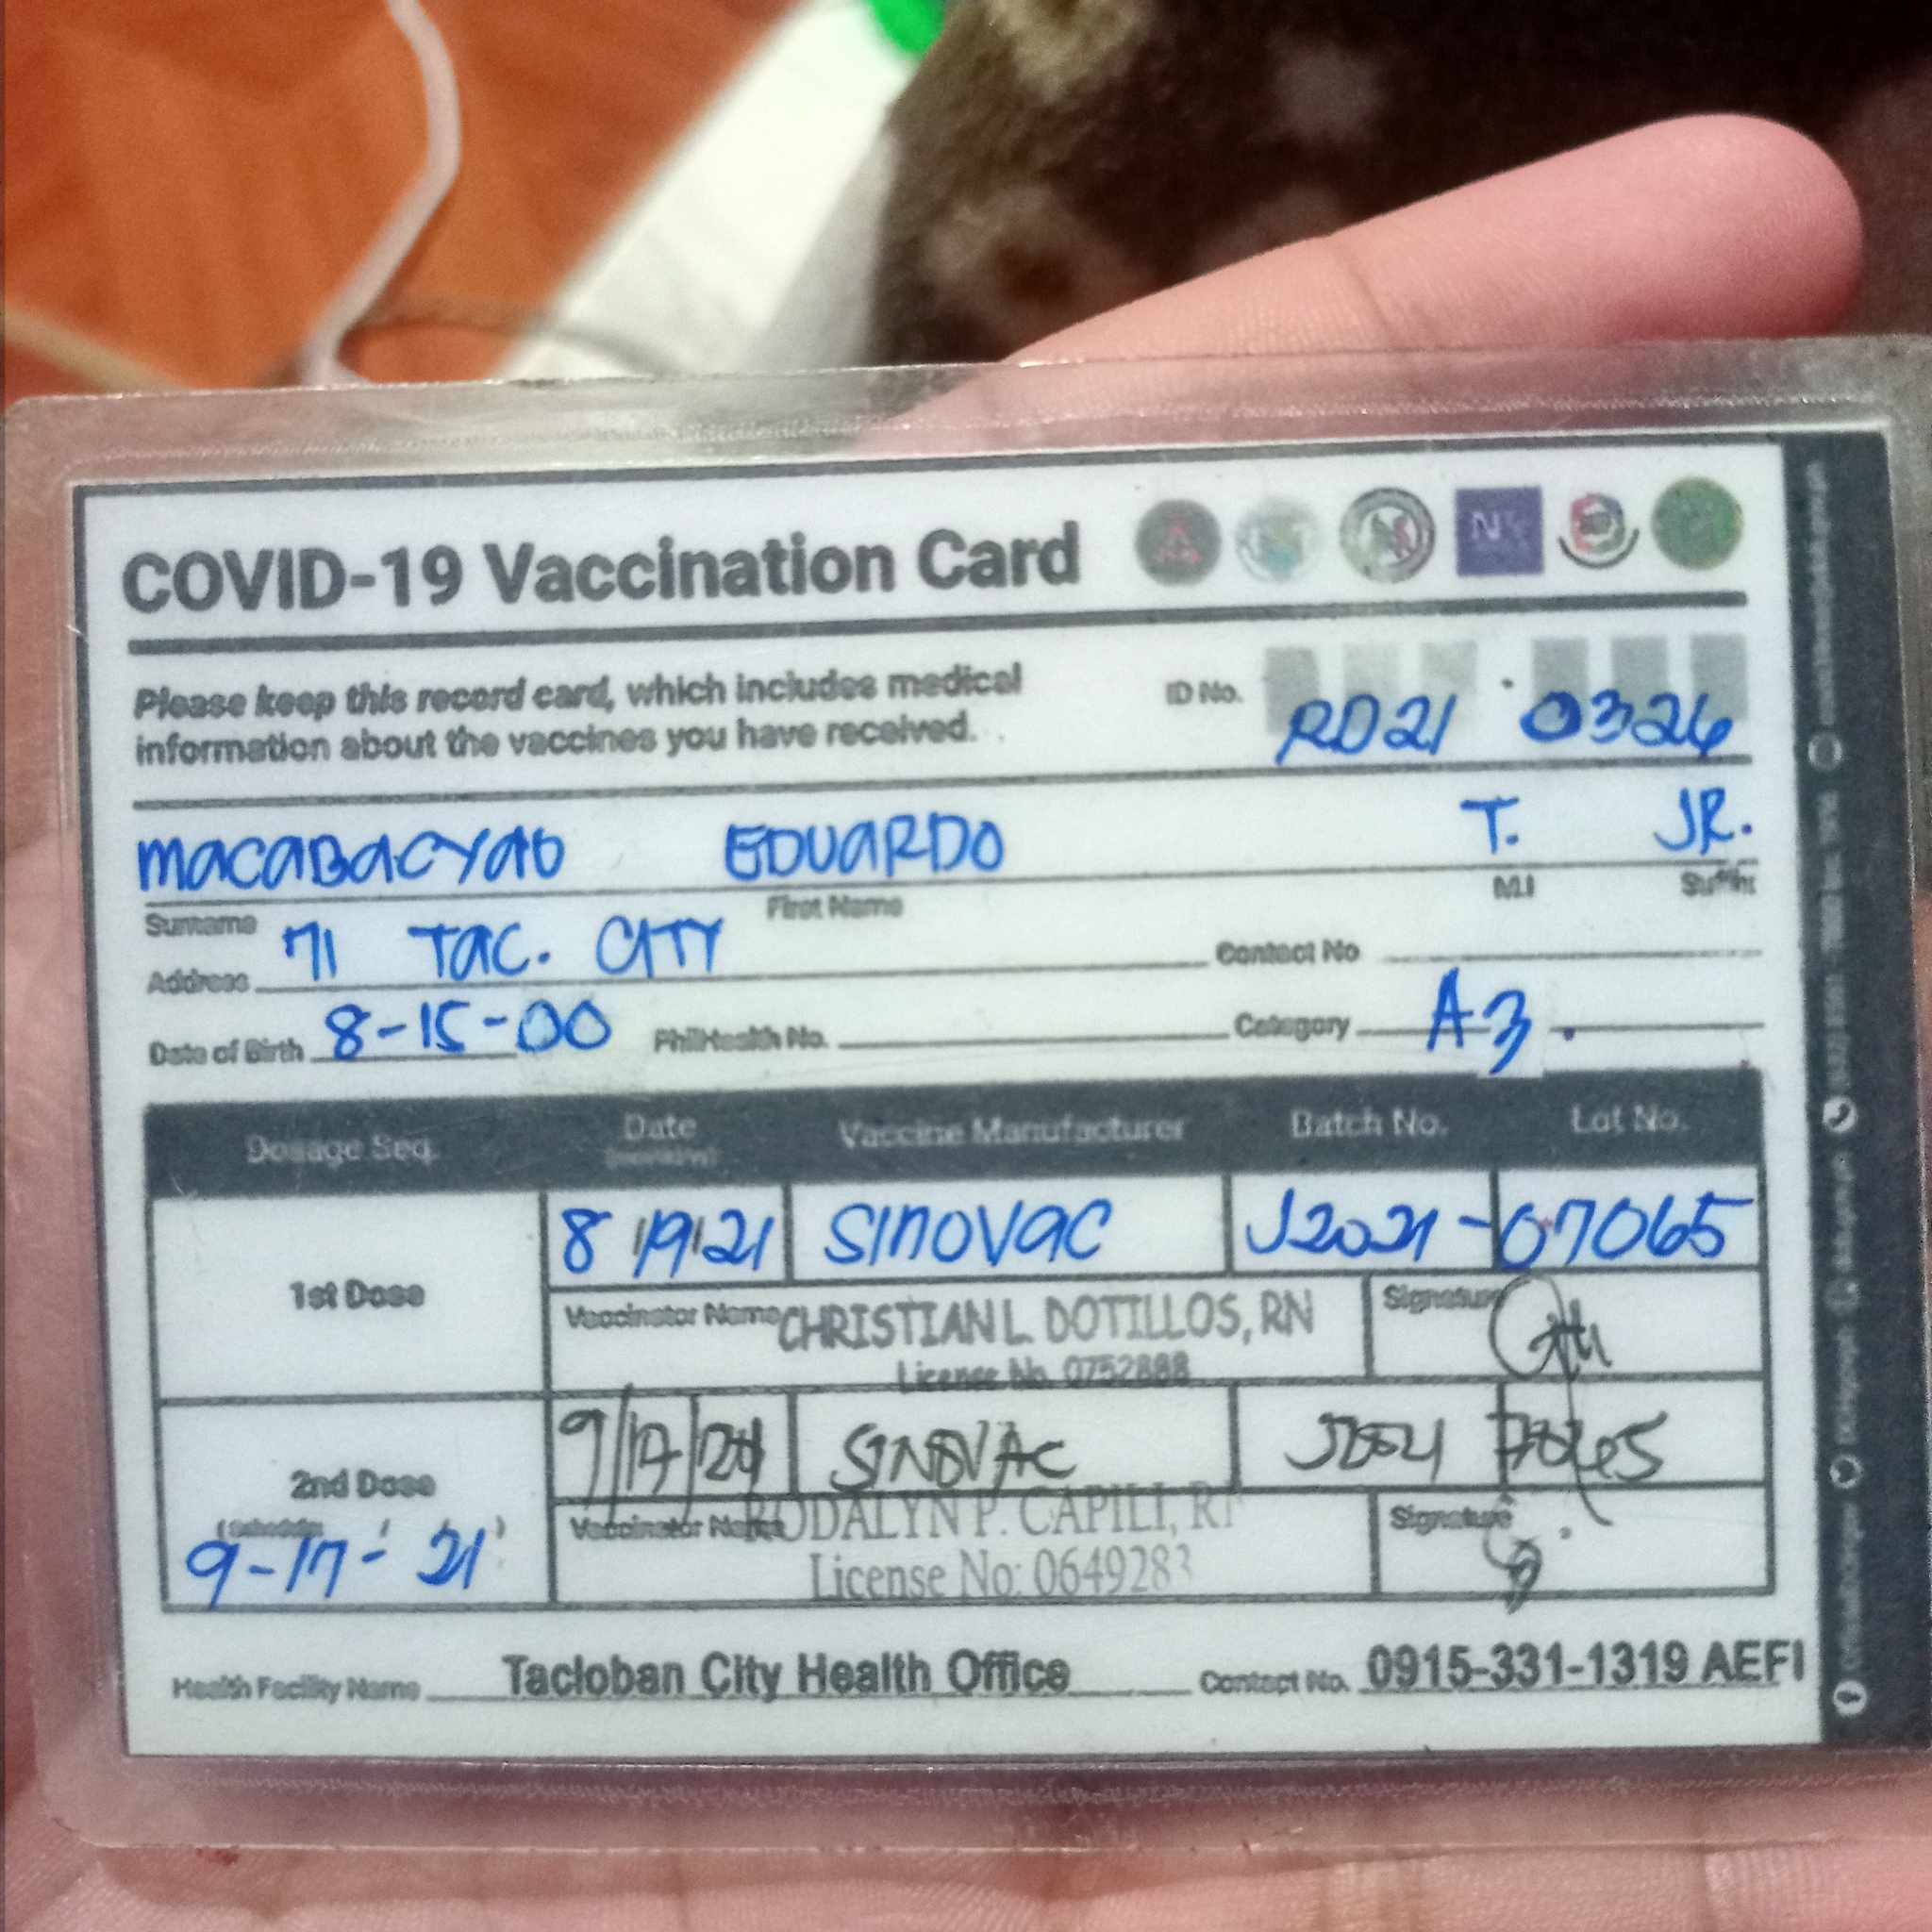 COVID-19 Vaccination Card
Please keep this record card, which includes medical
information about the vaccines you have received.
ID No. RD21 0326
MACABACYAO EDUARDO T. JR.
Surname First Name M.I Suffix
Address 71 TAC. CITY Contact No
Date of Birth 8-15-00 PhilHealth No. Category A3.
Dosage Seq. Date Vaccine Manufacturer Batch No. Lot No.
1st Dose 8/19/21 SINOVAC J2021-07065
Vaccinator Name CHRISTIAN L. DOTILLOS, RN Signature
License No. 0752888
2nd Dose 9/17/21 SINOVAC
9-17-21
Vaccinator Name RODALYN P. CAPILI, Signature
License No: 0649283
Health Facility Name Tacloban City Health Office Contact No. 0915-331-1319 AEFI